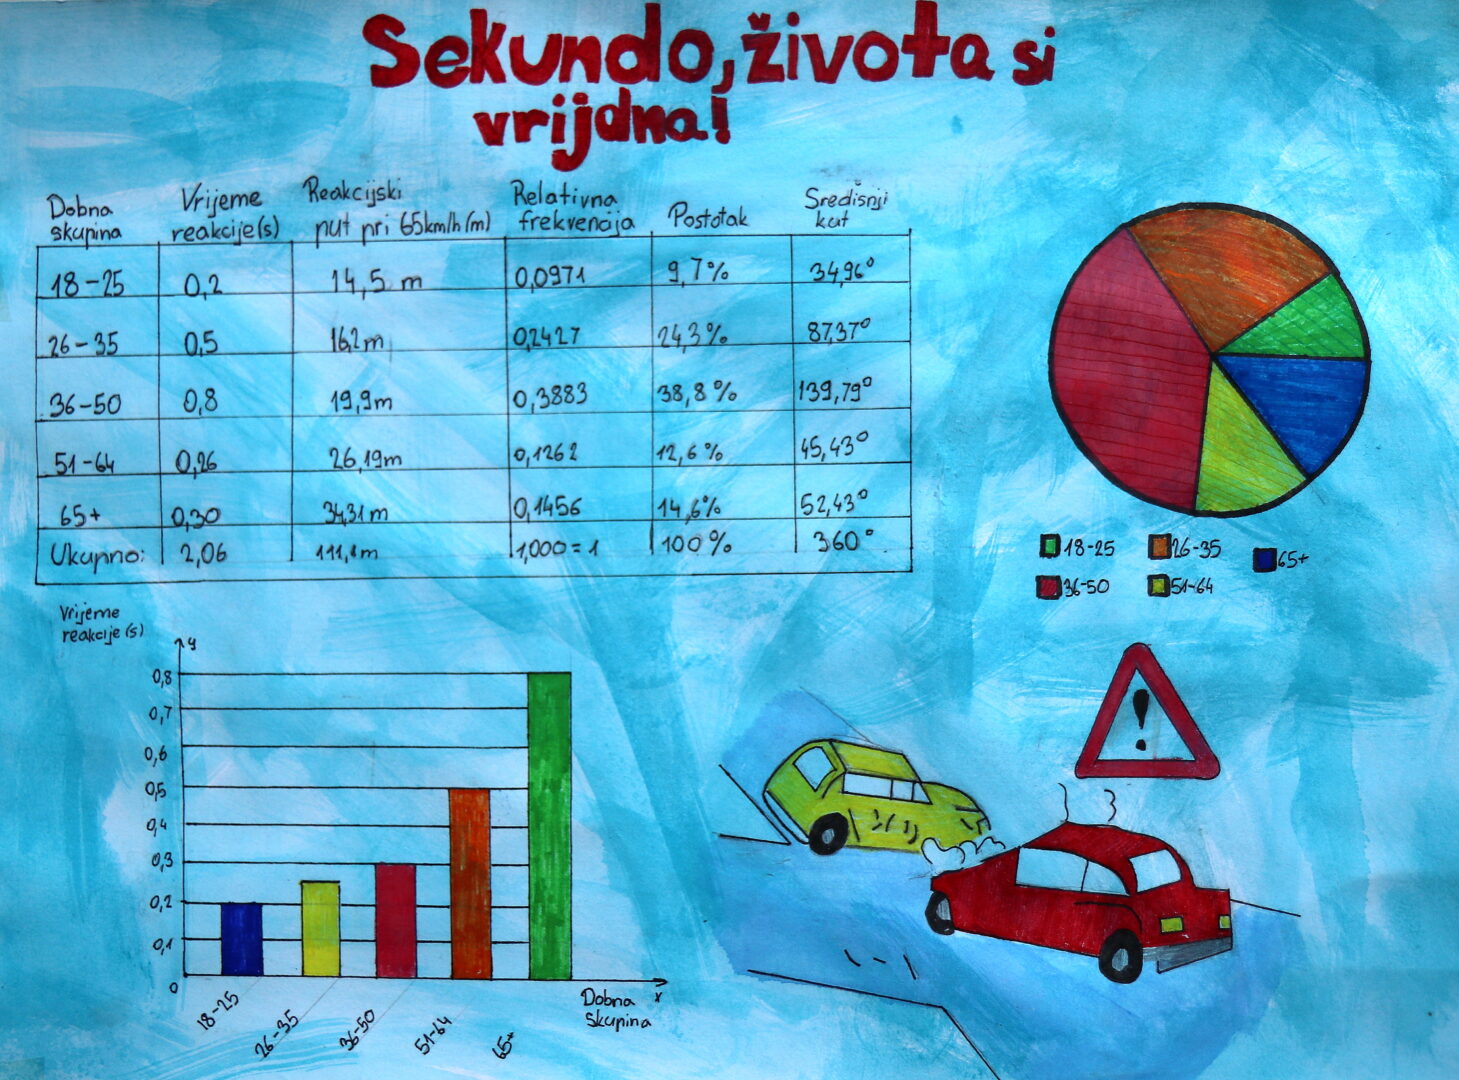 Sekundo, života si
vrijdna!
Dobna skupina | Vrijeme reakcije(s) | Reakcijski put pri 65km/h (m) | Relativna frekvencija | Postotak | Središnji kut
18-25 | 0,2 | 14,5 m | 0,0971 | 9,7% | 34,96°
26-35 | 0,5 | 16,2m | 0,2427 | 24,3% | 87,37°
36-50 | 0,8 | 19,9m | 0,3883 | 38,8% | 139,79°
51-64 | 0,26 | 26,19m | 0,1262 | 12,6% | 45,43°
65+ | 0,30 | 34,31m | 0,1456 | 14,6% | 52,43°
Ukupno: | 2,06 | 111,1m | 1,000=1 | 100% | 360°
18-25
26-35
65+
36-50
51-64
Vrijeme
reakcije (s)
y
0,8
0,7
0,6
0,5
0,4
0,3
0,2
0,1
0
18-25
26-35
36-50
51-64
65+
Dobna x
skupina
!